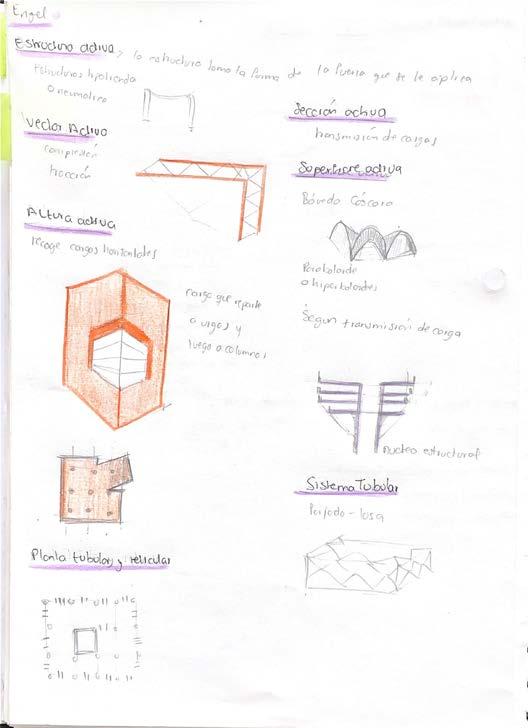 Engel
Estructura activa → la estructura toma la forma de la fuerza que se le aplica
Estructuras
o neumatica
Vector Activo
compresión
tracción
Altura activa
recoge cargas horizontales
carga que reparte
a vigas y
luego a columnas
Planta tubular y reticular
Sección activa
transmisión de cargas
Superficie activa
Bóveda Cáscara
Paraboloide
o hiperboloides
Segun transmisión de carga
Nucleo estructural
Sistema Tubular
losa